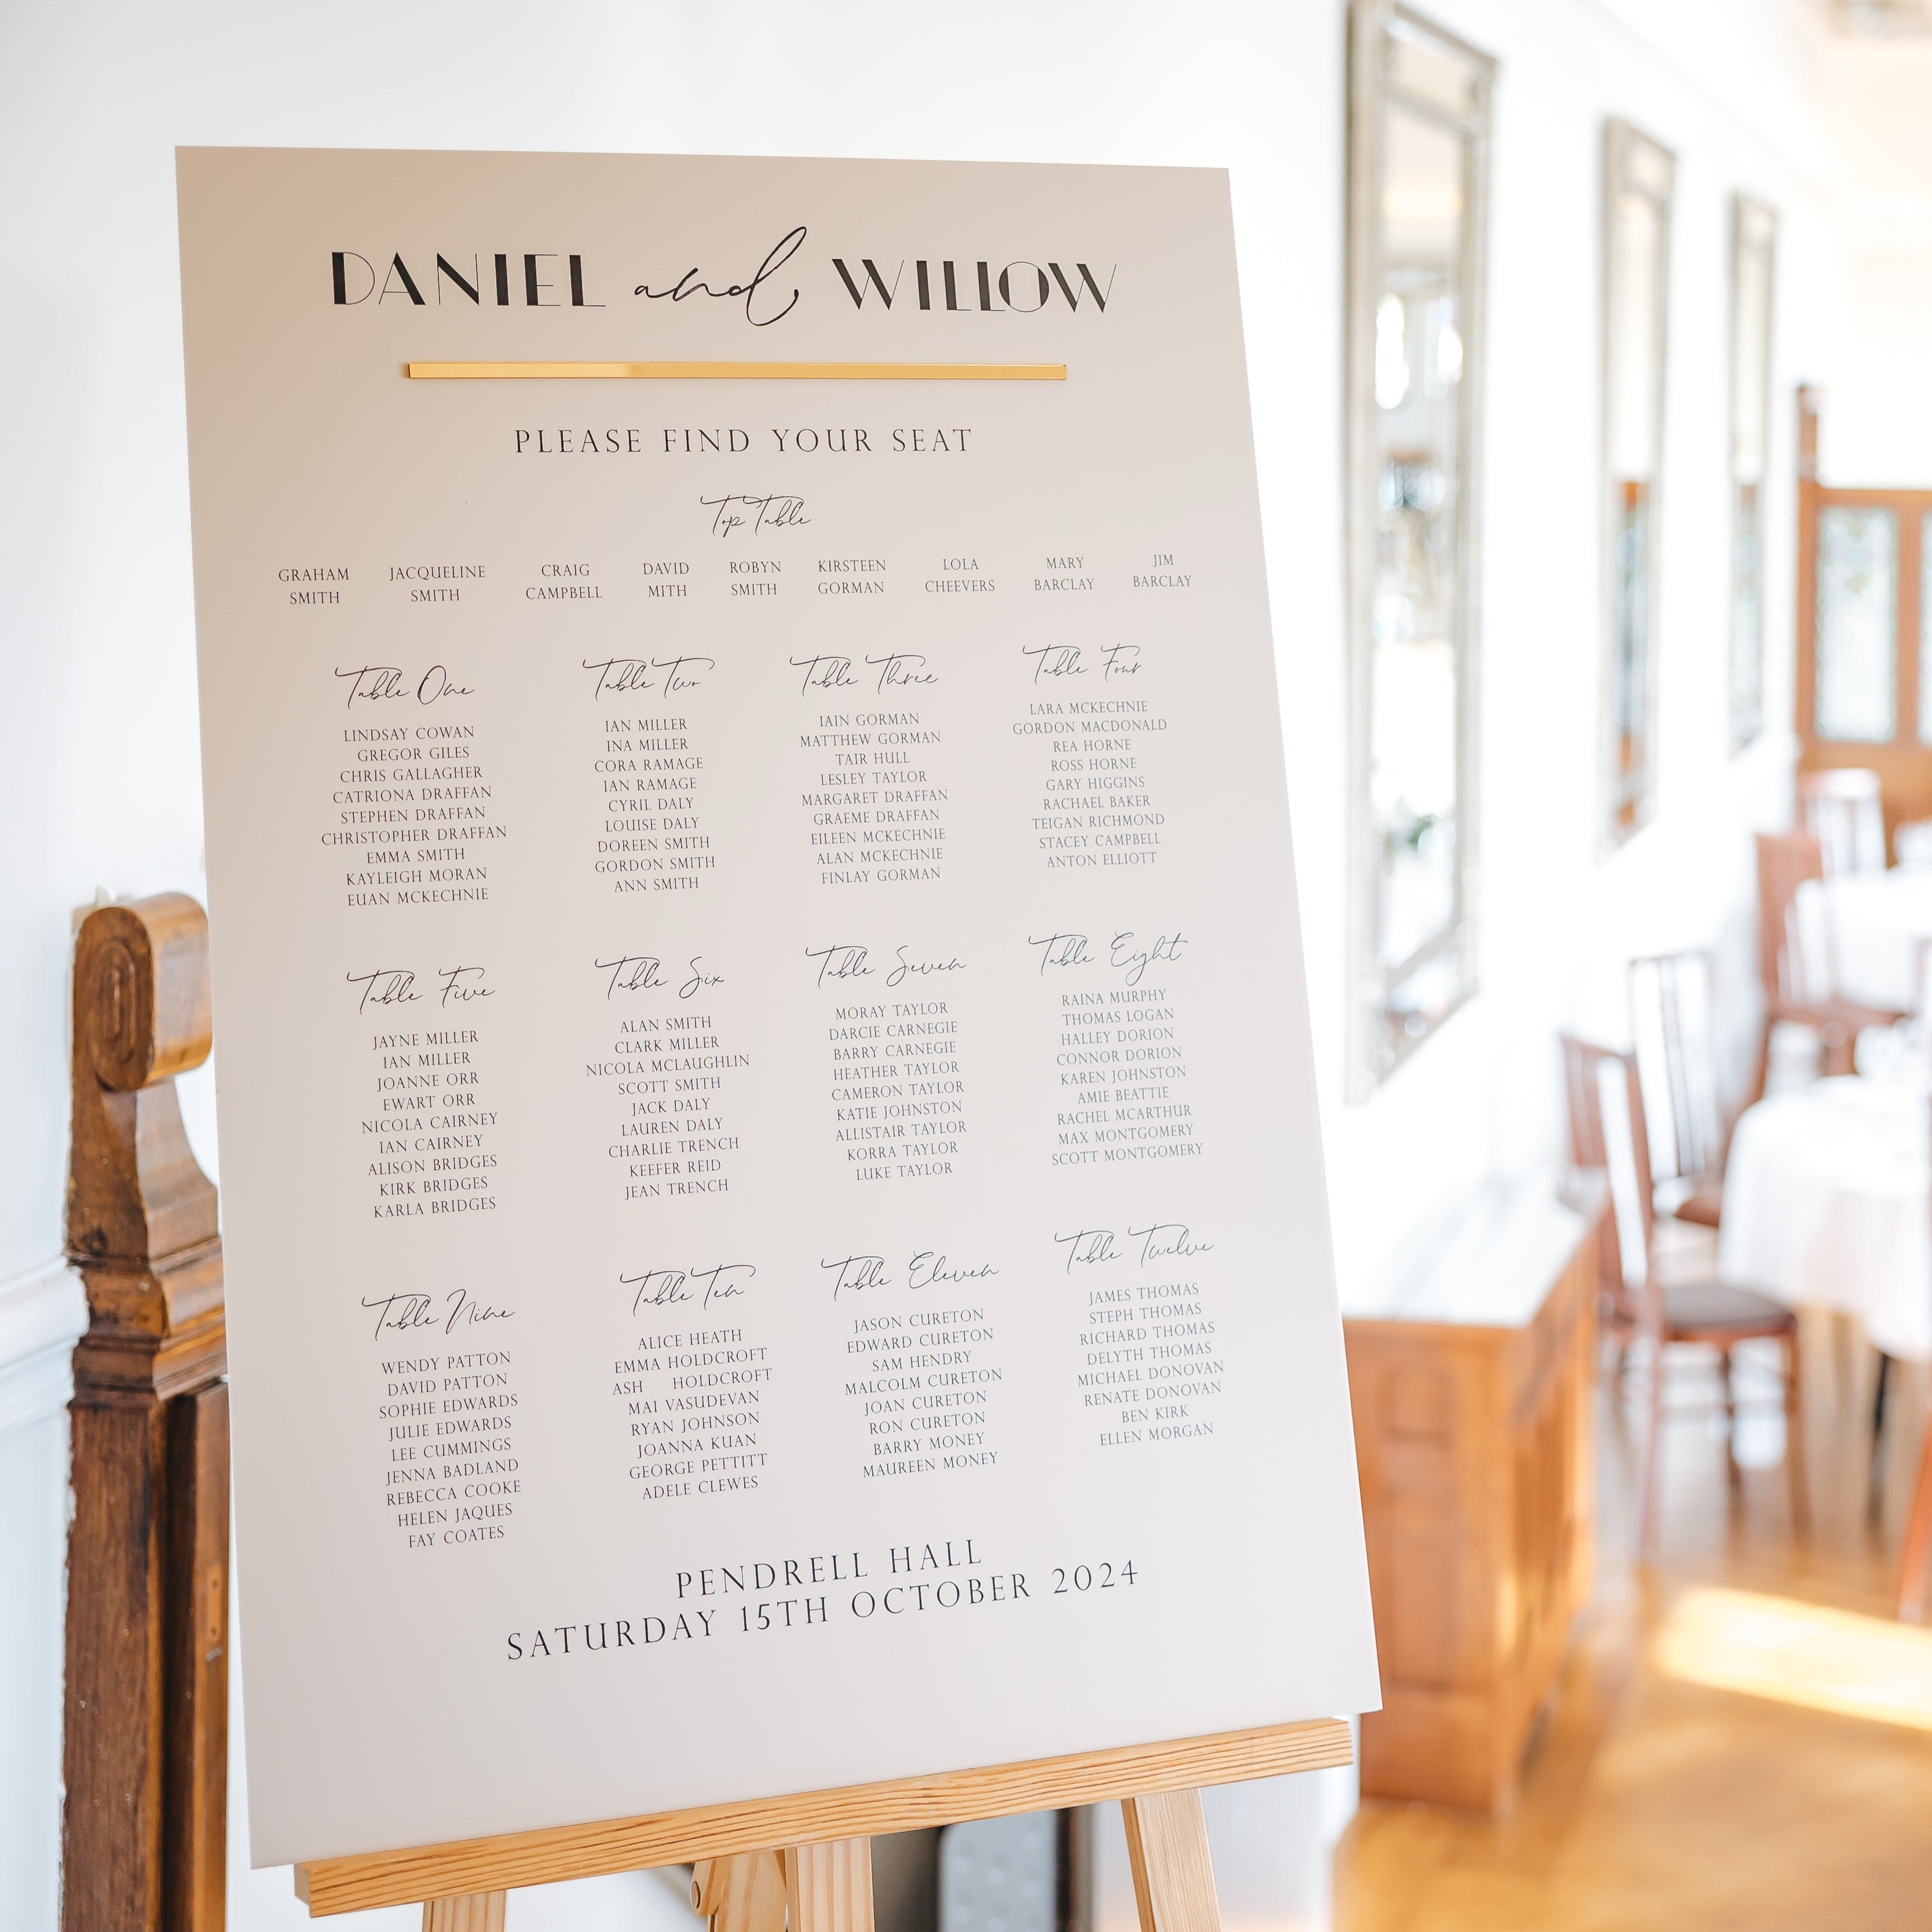 DANIEL and WILLOW
PLEASE FIND YOUR SEAT
Top Table
GRAHAM SMITH
JACQUELINE SMITH
CRAIG CAMPBELL
DAVID MITH
ROBYN SMITH
KIRSTEEN GORMAN
LOLA CHEEVERS
MARY BARCLAY
JIM BARCLAY
Table One
LINDSAY COWAN
GREGOR GILES
CHRIS GALLAGHER
CATRIONA DRAFFAN
STEPHEN DRAFFAN
CHRISTOPHER DRAFFAN
EMMA SMITH
KAYLEIGH MORAN
EUAN MCKECHNIE
Table Two
IAN MILLER
INA MILLER
CORA RAMAGE
IAN RAMAGE
CYRIL DALY
LOUISE DALY
DOREEN SMITH
GORDON SMITH
ANN SMITH
Table Three
IAIN GORMAN
MATTHEW GORMAN
TAIR HULL
LESLEY TAYLOR
MARGARET DRAFFAN
GRAEME DRAFFAN
EILEEN MCKECHNIE
ALAN MCKECHNIE
FINLAY GORMAN
Table Four
LARA MCKECHNIE
GORDON MACDONALD
REA HORNE
ROSS HORNE
GARY HIGGINS
RACHAEL BAKER
TEIGAN RICHMOND
STACEY CAMPBELL
ANTON ELLIOTT
Table Five
JAYNE MILLER
IAN MILLER
JOANNE ORR
EWART ORR
NICOLA CAIRNEY
IAN CAIRNEY
ALISON BRIDGES
KIRK BRIDGES
KARLA BRIDGES
Table Six
ALAN SMITH
CLARK MILLER
NICOLA MCLAUGHLIN
SCOTT SMITH
JACK DALY
LAUREN DALY
CHARLIE TRENCH
KEEFER REID
JEAN TRENCH
Table Seven
MORAY TAYLOR
DARCIE CARNEGIE
BARRY CARNEGIE
HEATHER TAYLOR
CAMERON TAYLOR
KATIE JOHNSTON
ALLISTAIR TAYLOR
KORRA TAYLOR
LUKE TAYLOR
Table Eight
RAINA MURPHY
THOMAS LOGAN
HALLEY DORION
CONNOR DORION
KAREN JOHNSTON
AMIE BEATTIE
RACHEL MCARTHUR
MAX MONTGOMERY
SCOTT MONTGOMERY
Table Nine
WENDY PATTON
DAVID PATTON
SOPHIE EDWARDS
JULIE EDWARDS
LEE CUMMINGS
JENNA BADLAND
REBECCA COOKE
HELEN JAQUES
FAY COATES
Table Ten
ALICE HEATH
EMMA HOLDCROFT
ASH HOLDCROFT
MAI VASUDEVAN
RYAN JOHNSON
JOANNA KUAN
GEORGE PETTITT
ADELE CLEWES
Table Eleven
JASON CURETON
EDWARD CURETON
SAM HENDRY
MALCOLM CURETON
JOAN CURETON
RON CURETON
BARRY MONEY
MAUREEN MONEY
Table Twelve
JAMES THOMAS
STEPH THOMAS
RICHARD THOMAS
DELYTH THOMAS
MICHAEL DONOVAN
RENATE DONOVAN
BEN KIRK
ELLEN MORGAN
PENDRELL HALL
SATURDAY 15TH OCTOBER 2024